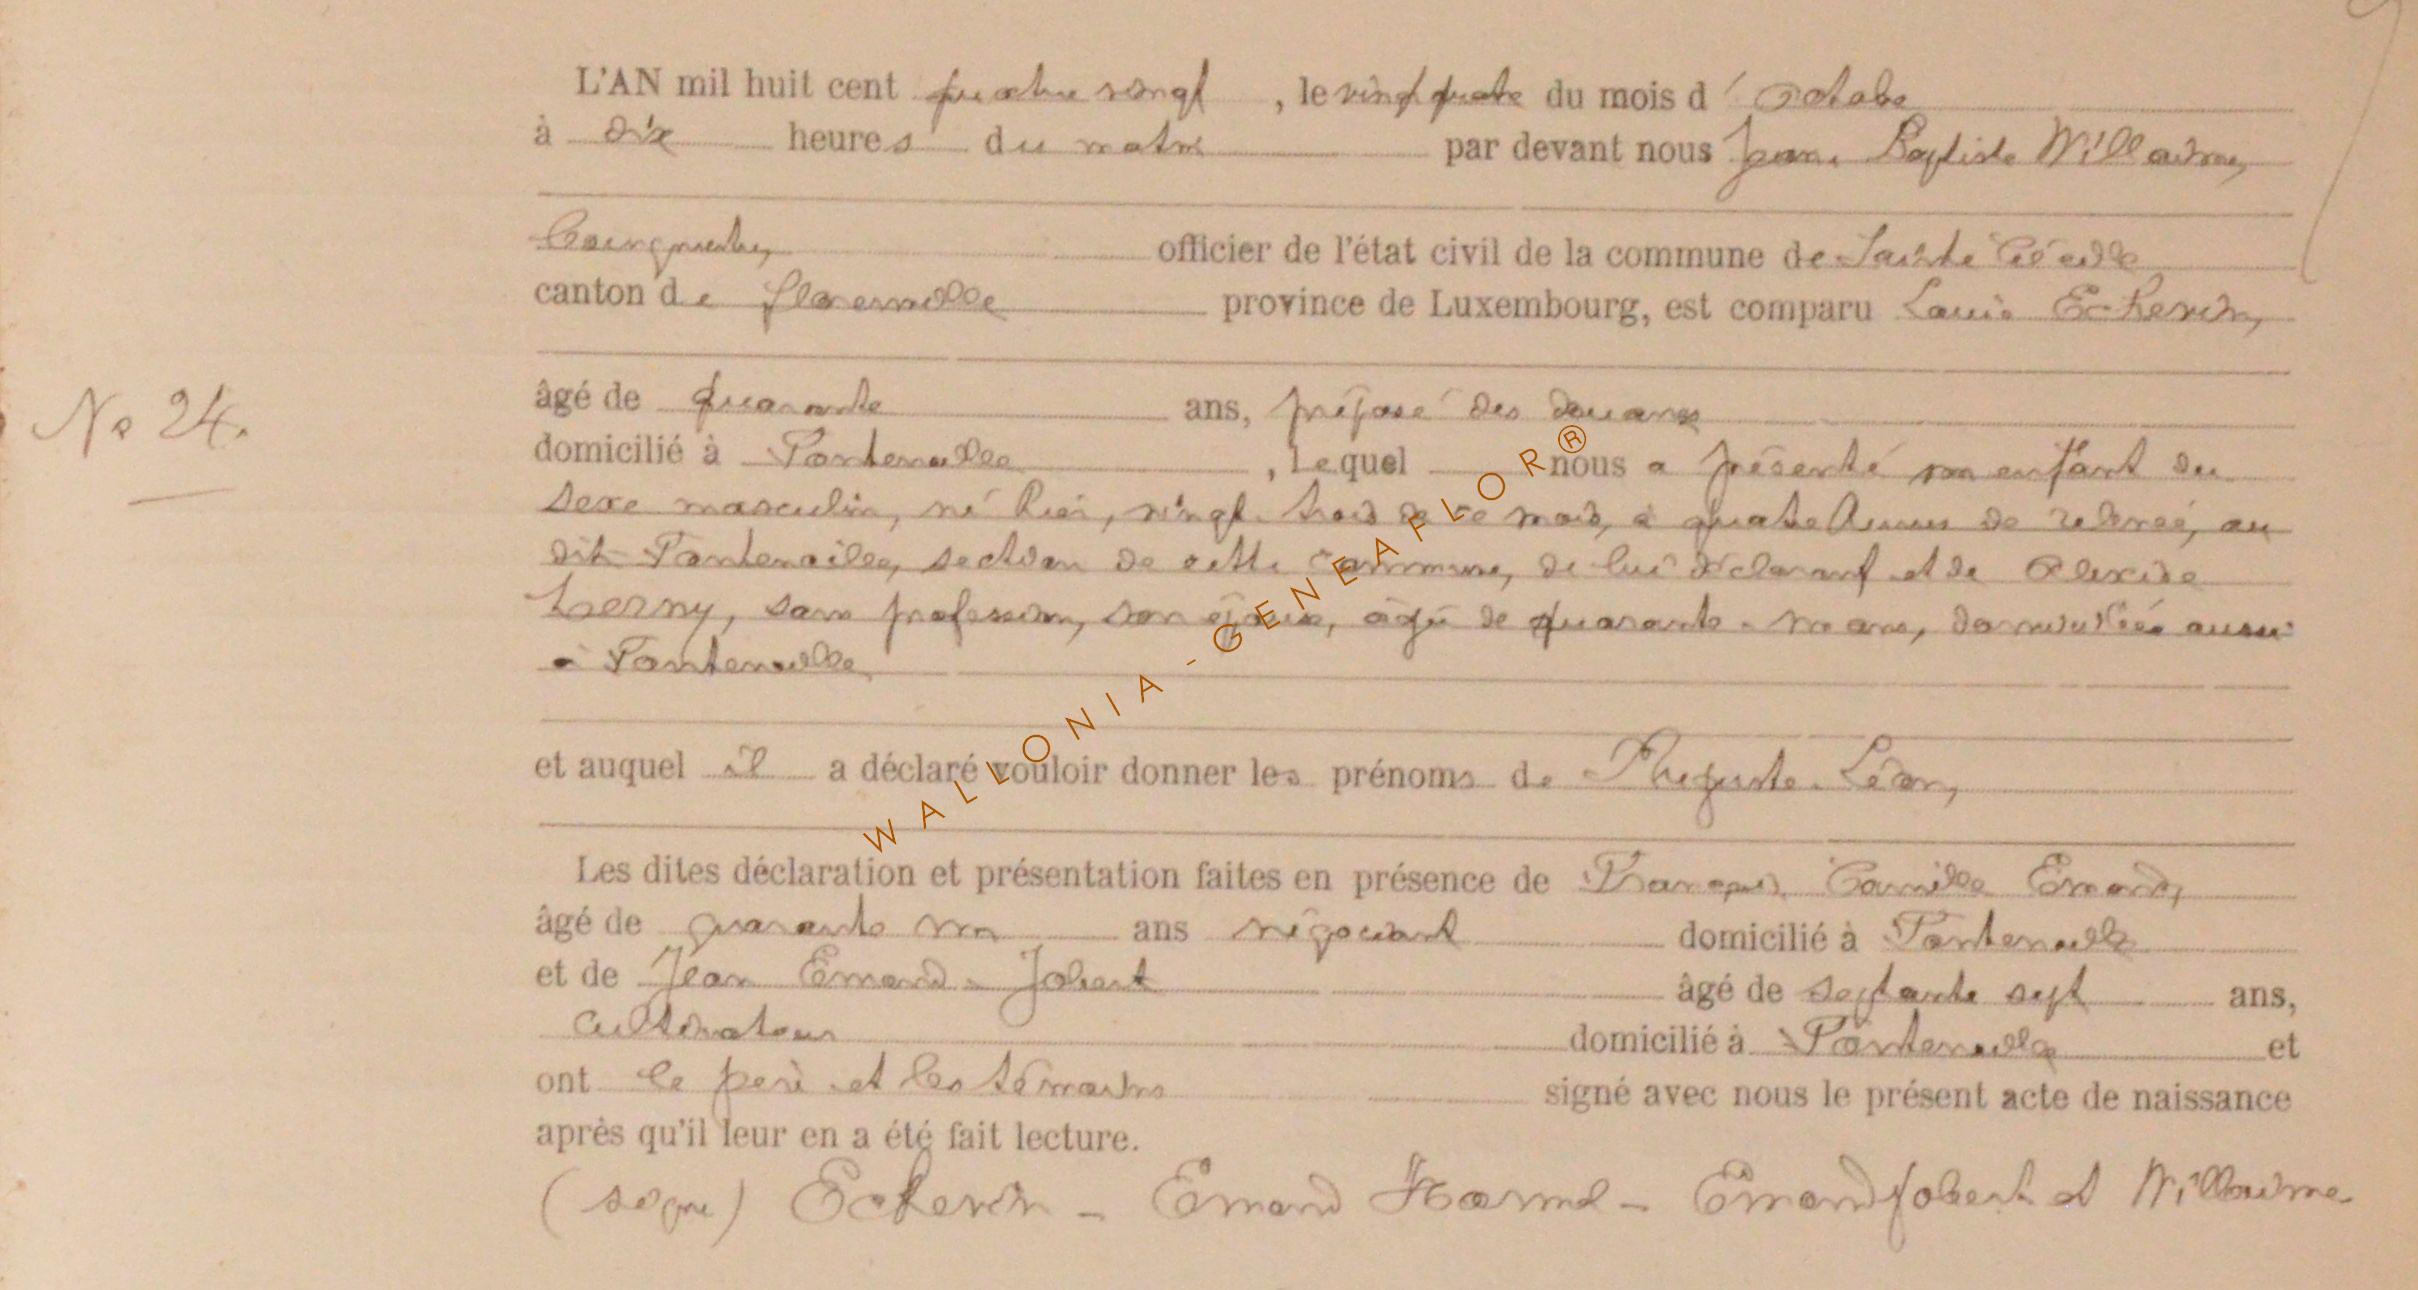 L'AN mil huit cent quatre vingt, le vingt quatre du mois d'Octobre
à dix heures du matin par devant nous Jean Baptiste Willaime,
Bourgmestre, officier de l'état civil de la commune de Sainte Cécile
canton de Florenville province de Luxembourg, est comparu Louis Echevin,
No 24.
âgé de quarante ans, préposé des douanes
domicilié à Fontenoille, Lequel nous a présenté un enfant du
sexe masculin, né hier, vingt trois de ce mois, à quatre heures de relevée, au
dit Fontenoille, section de cette commune, de lui déclarant et de Alexise
Lerny, sans profession, son épouse, âgée de quarante-un ans, domiciliée aussi
à Fontenoille
et auquel il a déclaré vouloir donner les prénoms de Auguste Léon,
Les dites déclaration et présentation faites en présence de François Camille Emond,
âgé de quarante un ans négociant domicilié à Fontenoille
et de Jean Emond-Jobert âgé de septante sept ans,
cultivateur domicilié à Fontenoille et
ont le père et les témoins signé avec nous le présent acte de naissance
après qu'il leur en a été fait lecture.
(signé) Echevin - Emond - Emond Jobert et Willaime
WALLONIA-GENEAFLOR®